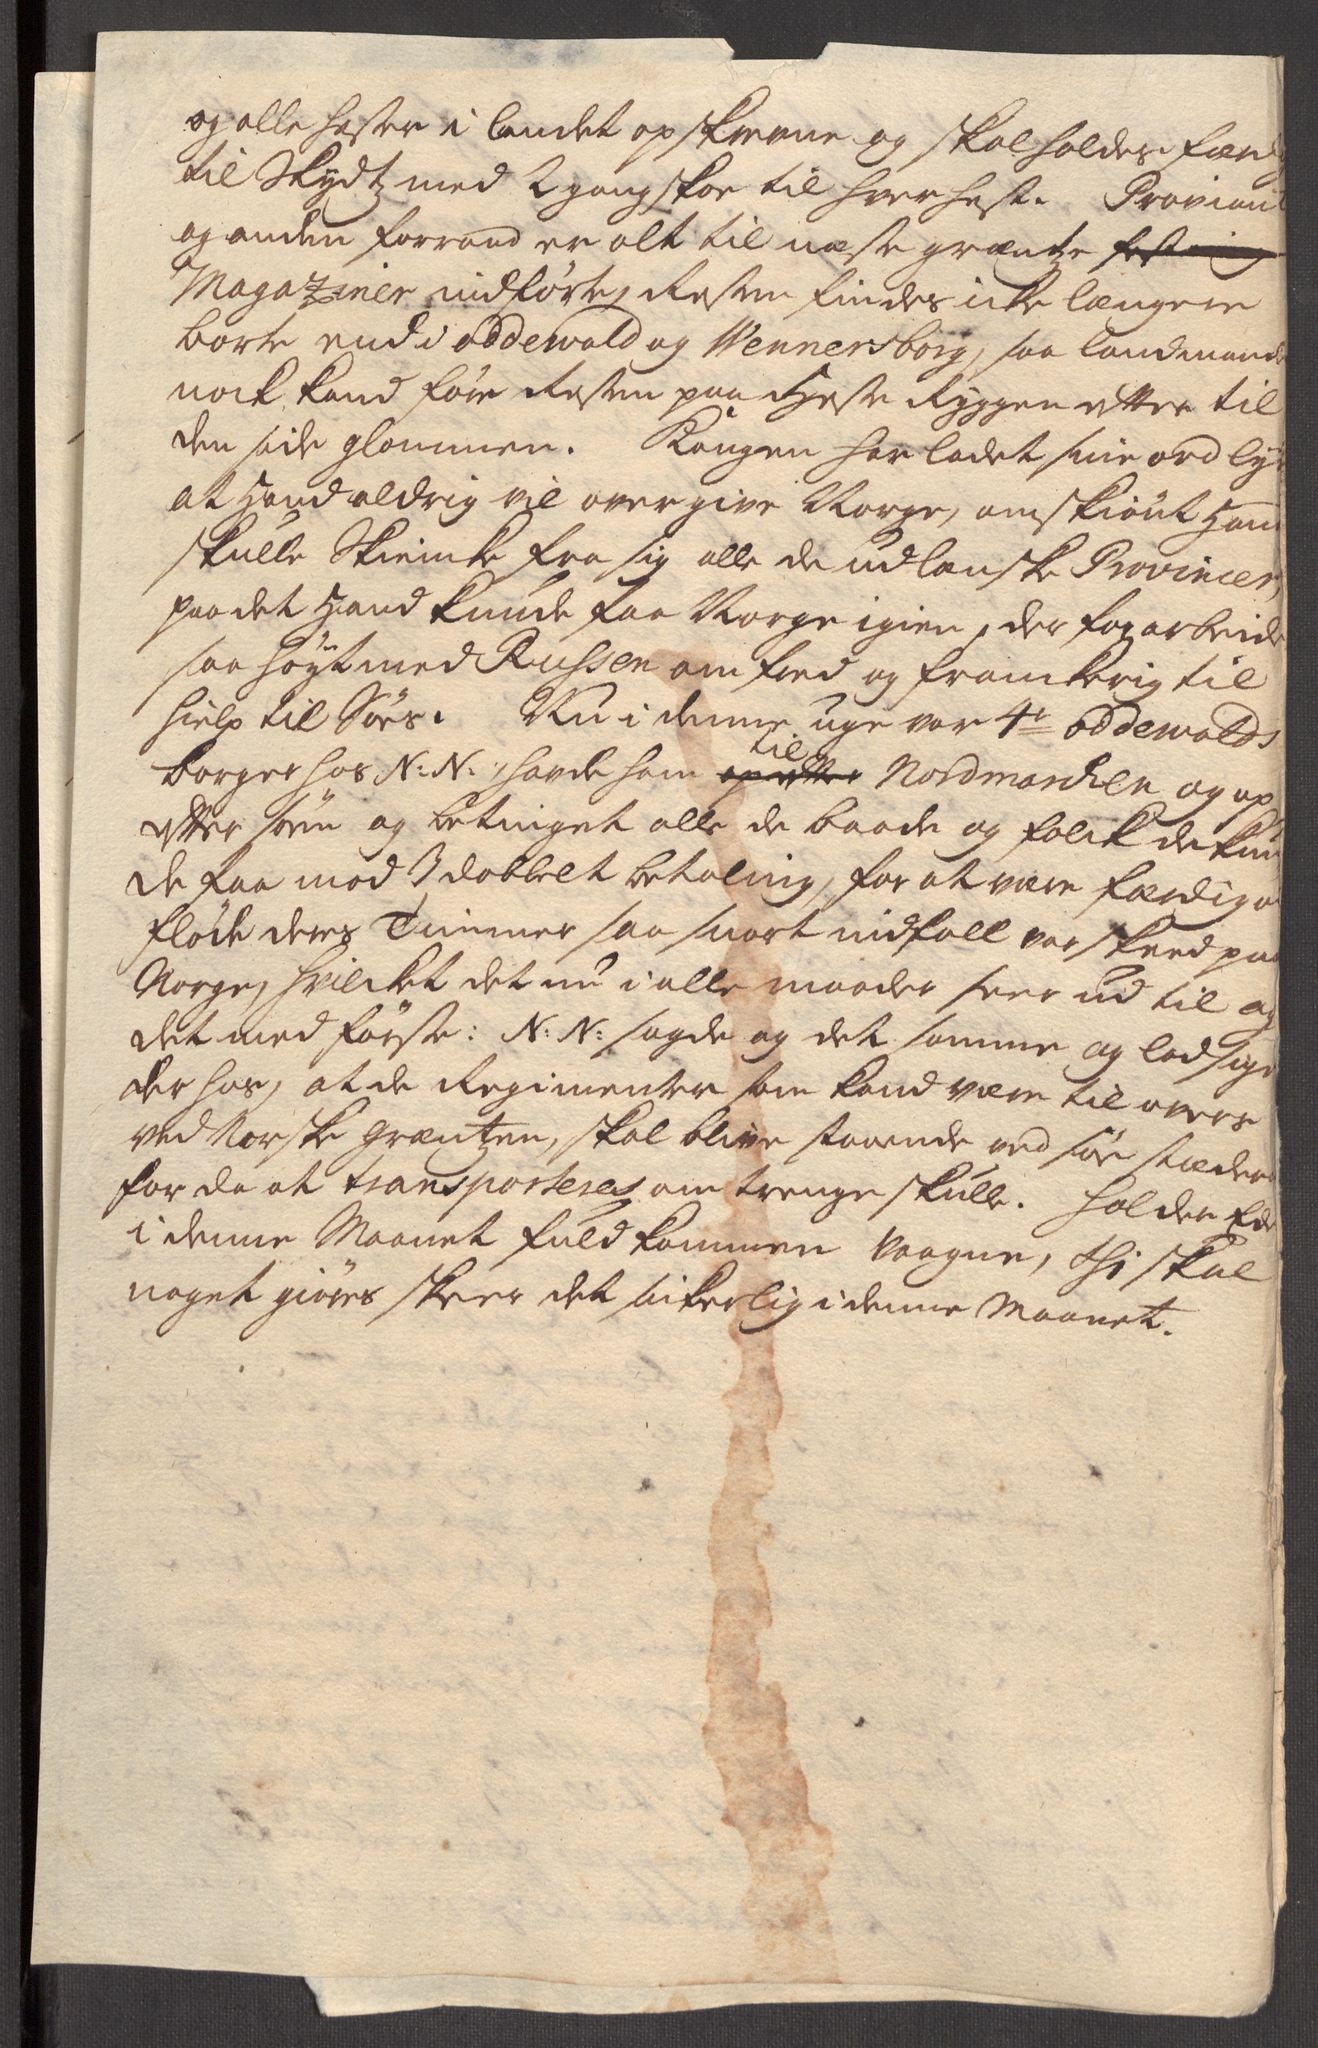 og alle hester i landet opskrevne og skal holdes færdig
til Skydtz med 2 gangskoe til hver hest. Proviant
og anden forraad er alt til neste græntze festning
Magaziner nidførte, Resten findes icke længere
borte end i oddewald og Wennersborg, saa landmanden
nock kand føre Resten paa Heste Ryggen etter til
den side glommen. Kongen har ladet sine ord lyde
at Hand aldrig vil overgive Norge, omskiønt Hand
skulle Skiencke fra sig alle de udlenske Provincer,
paa det Hand kunde faa Norge igien, der for arbeides
saa høyt med Russen om fred og franckerig til
hielp til Søes. Nu i denne uge var 4re oddewalds
borger hos N: N:, havde hem op etter til Nordmarcken og op
etter søen og betinget alle de baade og folck de kun
de faa mod 3 dobbelt betaling, for at være færdig at
fløde deres Timmer saa snart nidfall var skeed paa
Norge, hvilcket det nu i alle maader seer ud til og
det med første: N: N: sagde og det samme og lod sige
der hos, at de Regimenter som kand være til overs
ved Norske Græntzen, skal blive staaende ved søe stæderne
for da at transporteres, om trenge skulle. holder Eder
i denne Maanet fuldkommen vaagne, thi skal
noget giøres skeer det sickerlig i denne Maanet.